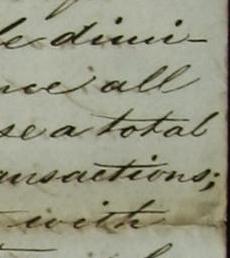 le dimi-
nce all
se a total
ansactions;
with